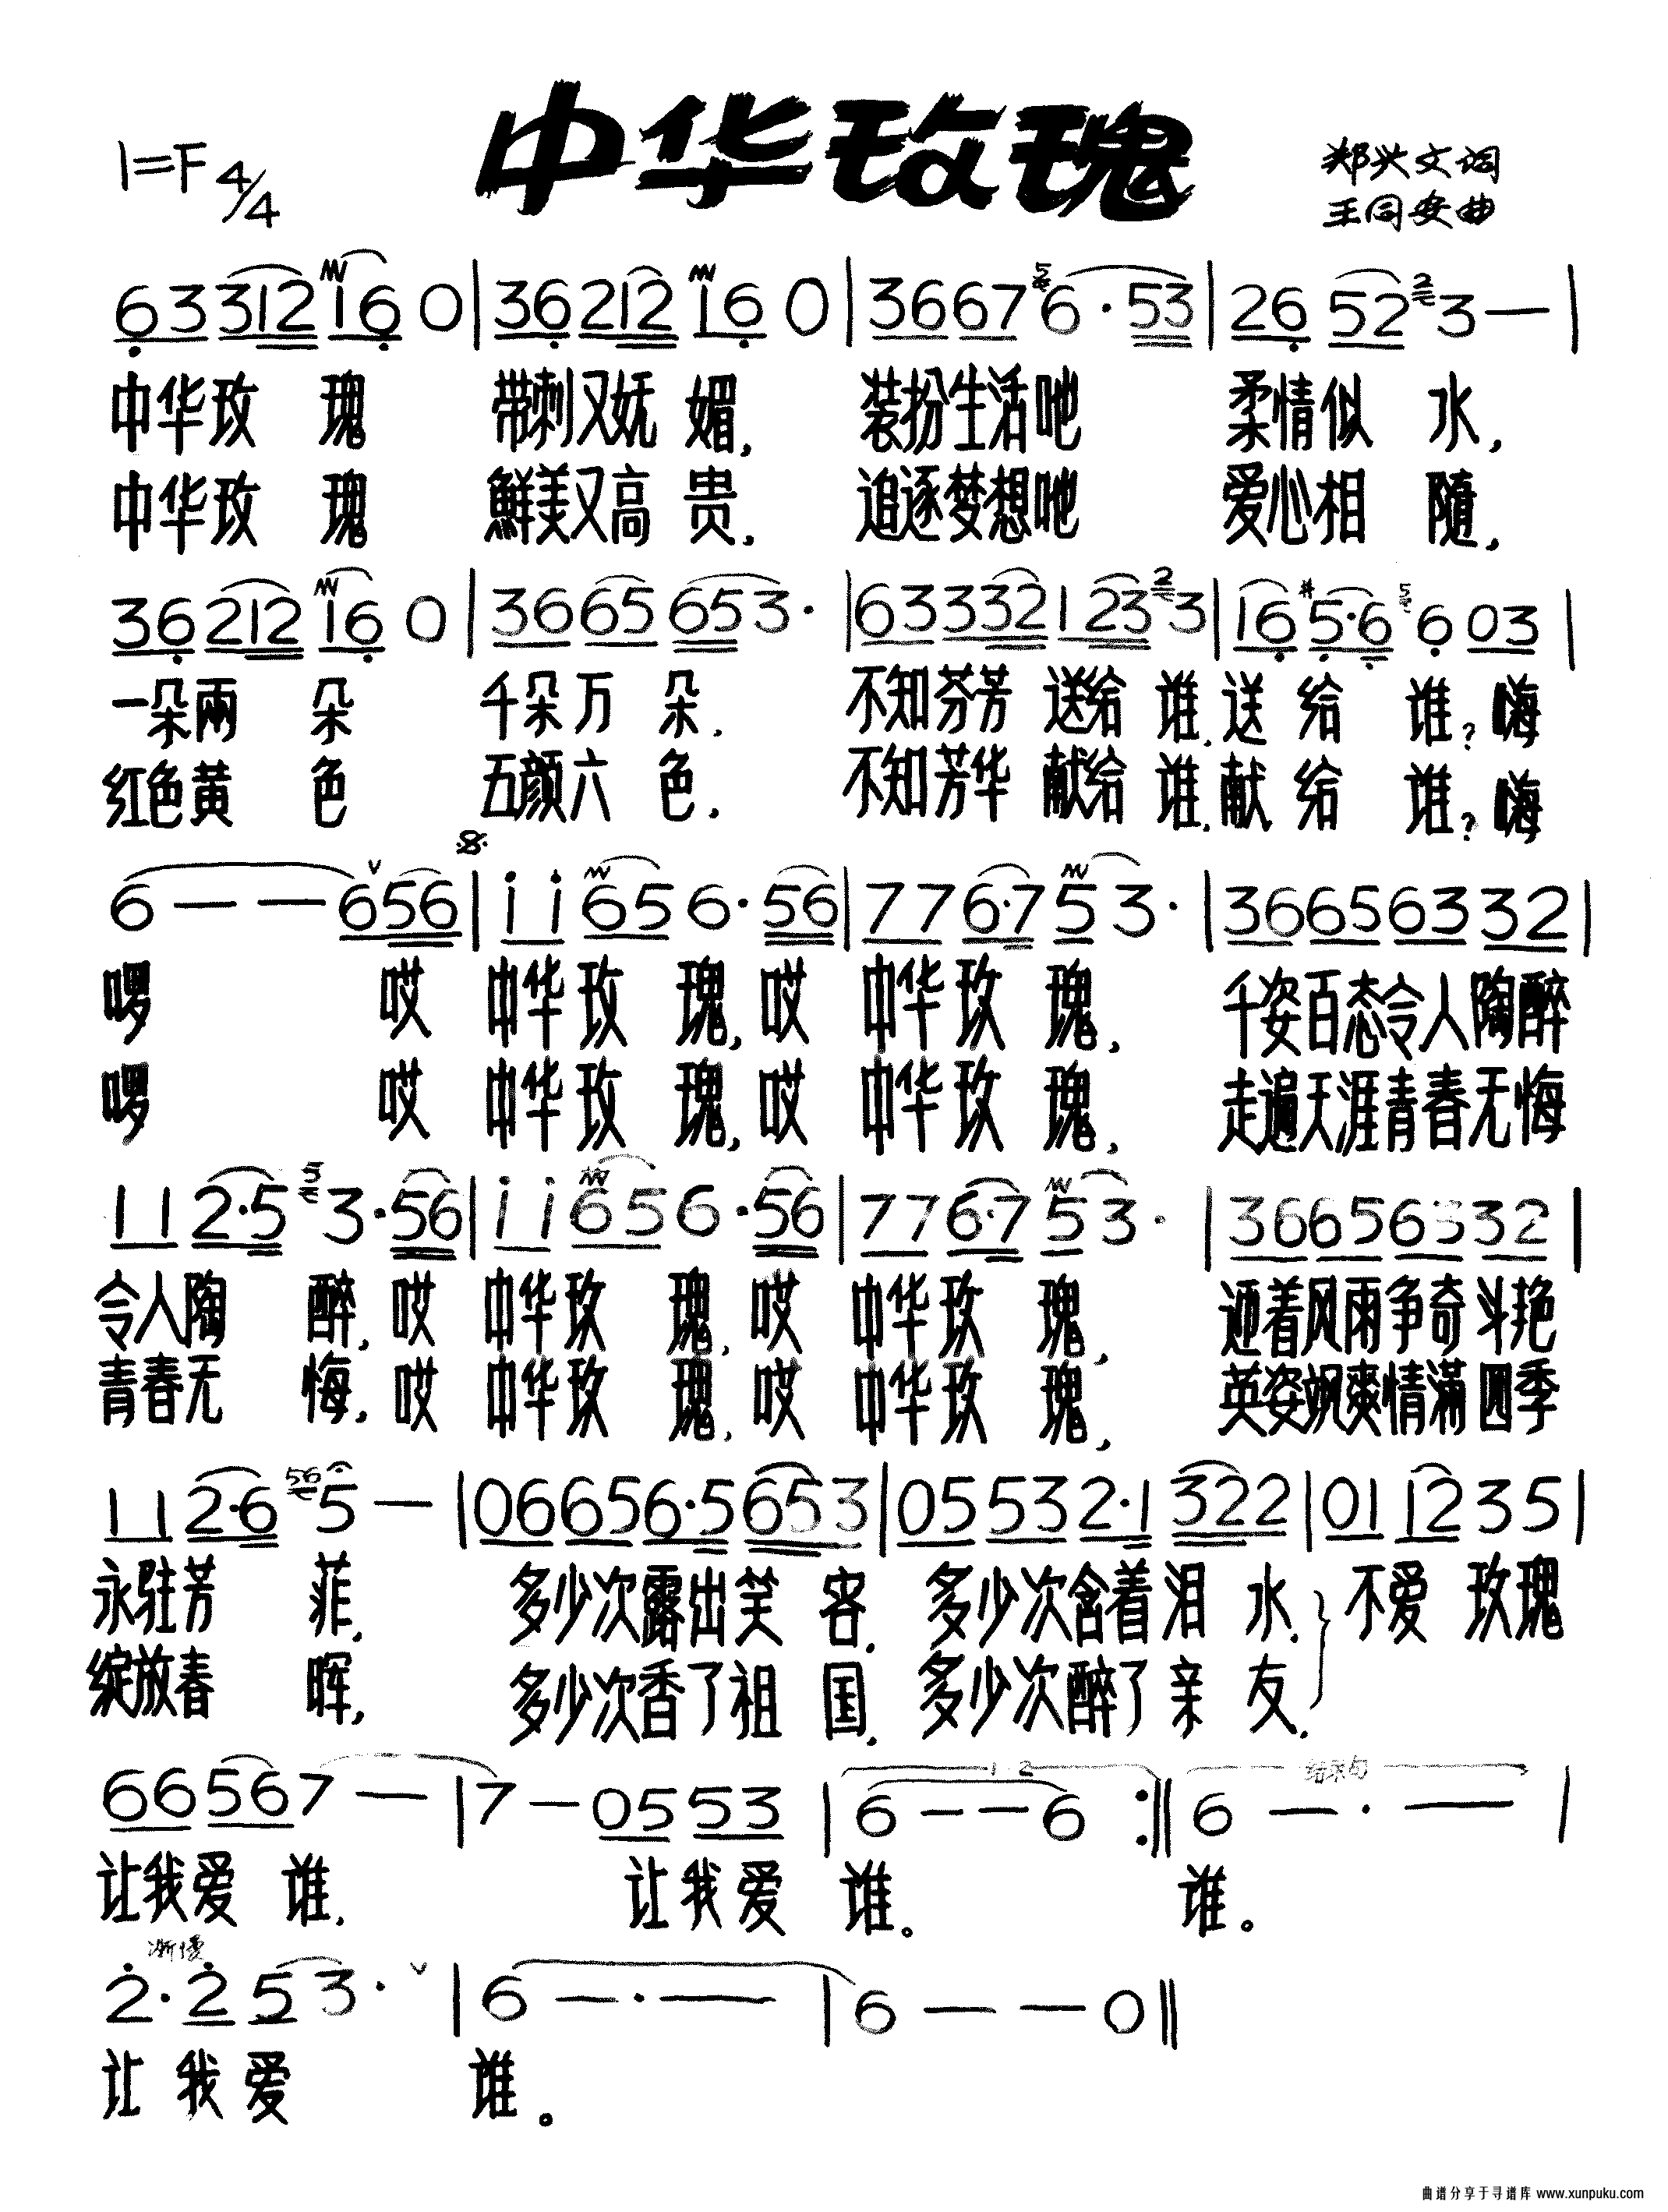 中华玫瑰
1=F 4/4
郑兴文词
王同安曲
6 3 3 1 2 1 6 0 | 3 6 2 1 2 1 6 0 | 3 6 6 7 5 6 · 5 3 | 2 6 5 2 2 3 — |
中华玫 瑰 带刺又妩 媚, 装扮生活吔 柔情似 水,
中华玫 瑰 鮮美又高 贵, 追逐梦想吔 爱心相 隨,
3 6 2 1 2 1 6 0 | 3 6 6 5 6 5 3 · | 6 3 3 3 2 1 2 3 2 3 | 1 6 #5 · 6 5 6 0 3 |
一朵兩 朵 千朵万 朵, 不知芬芳 送给 谁,送 给 谁?嗨
红色黄 色 五颜六 色, 不知芳华 献给 谁,献 给 谁?嗨
6 — — 6 5 6 | i i 6 5 6 · 5 6 | 7 7 6 · 7 5 3 · | 3 6 6 5 6 3 3 2 |
啰 哎 中华玫 瑰,哎 中华玫 瑰, 千姿百态令人陶醉
啰 哎 中华玫 瑰,哎 中华玫 瑰, 走遍天涯青春无悔
1 1 2 · 5 3 3 · 5 6 | i i 6 5 6 · 5 6 | 7 7 6 · 7 5 3 · | 3 6 6 5 6 3 3 2 |
令人陶 醉,哎 中华玫 瑰,哎 中华玫 瑰, 迎着风雨争奇斗艳
青春无 悔,哎 中华玫 瑰,哎 中华玫 瑰, 英姿飒爽情滿四季
1 1 2 · 6 56 5 — | 0 6 6 5 6 · 5 6 5 3 | 0 5 5 3 2 · 1 3 2 2 | 0 1 1 2 3 5 |
永驻芳 菲, 多少次露出笑 容, 多少次含着泪 水, 不爱 玫瑰
绽放春 晖, 多少次香了祖 国, 多少次醉了亲 友,
1 2 结束句
6 6 5 6 7 — | 7 — 0 5 5 3 | 6 — — 6 :‖ 6 — · — |
让我爱 谁, 让我爱 谁。 谁。
渐慢
2 · 2 5 3 · | 6 — · — | 6 — — 0 ‖
让 我 爱 谁。
曲谱分享于寻谱库 www.xunpuku.com